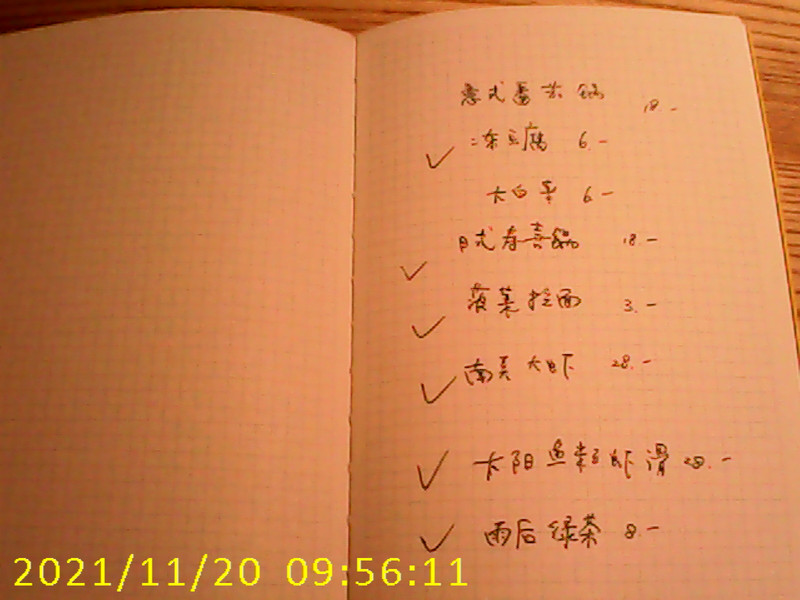 意式番茄锅 18.-
冻豆腐 6.-
大白菜 6.-
日式寿喜锅 18.-
菠菜拉面 3.-
南美大虾 28.-
太阳鱼籽虾滑 28.-
雨后绿茶 8.-
2021/11/20 09:56:11